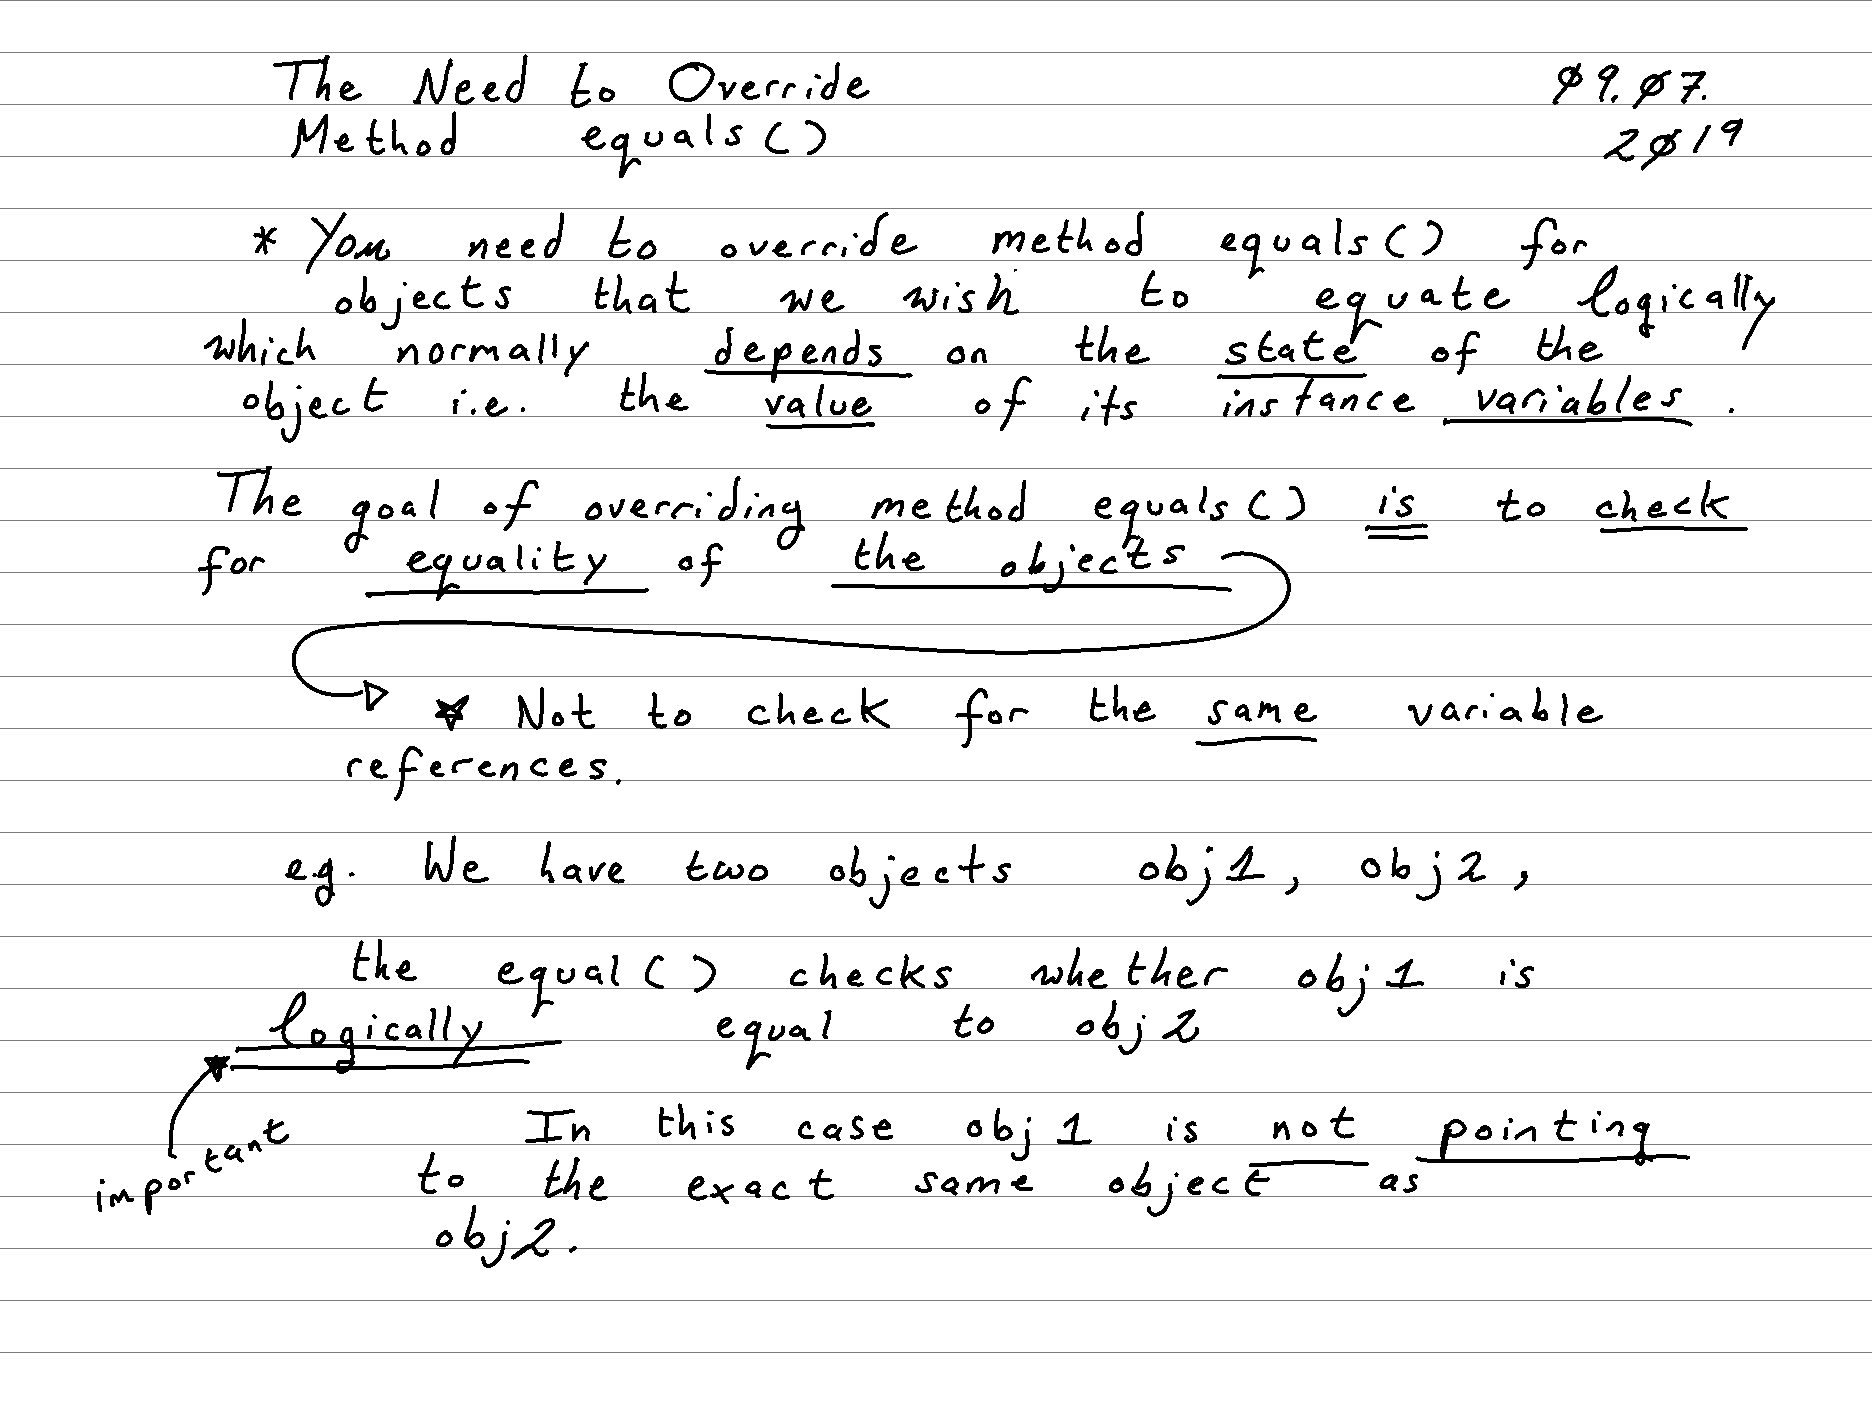 The Need to Override
Method equals()
09.07.
2019
* You need to override method equals() for
objects that we wish to equate logically
which normally depends on the state of the
object i.e. the value of its instance variables.
The goal of overriding method equals() is to check
for equality of the objects
* Not to check for the same variable
references.
e.g. We have two objects obj1, obj2,
the equal() checks whether obj1 is
logically equal to obj2
important
In this case obj1 is not pointing
to the exact same object as
obj2.